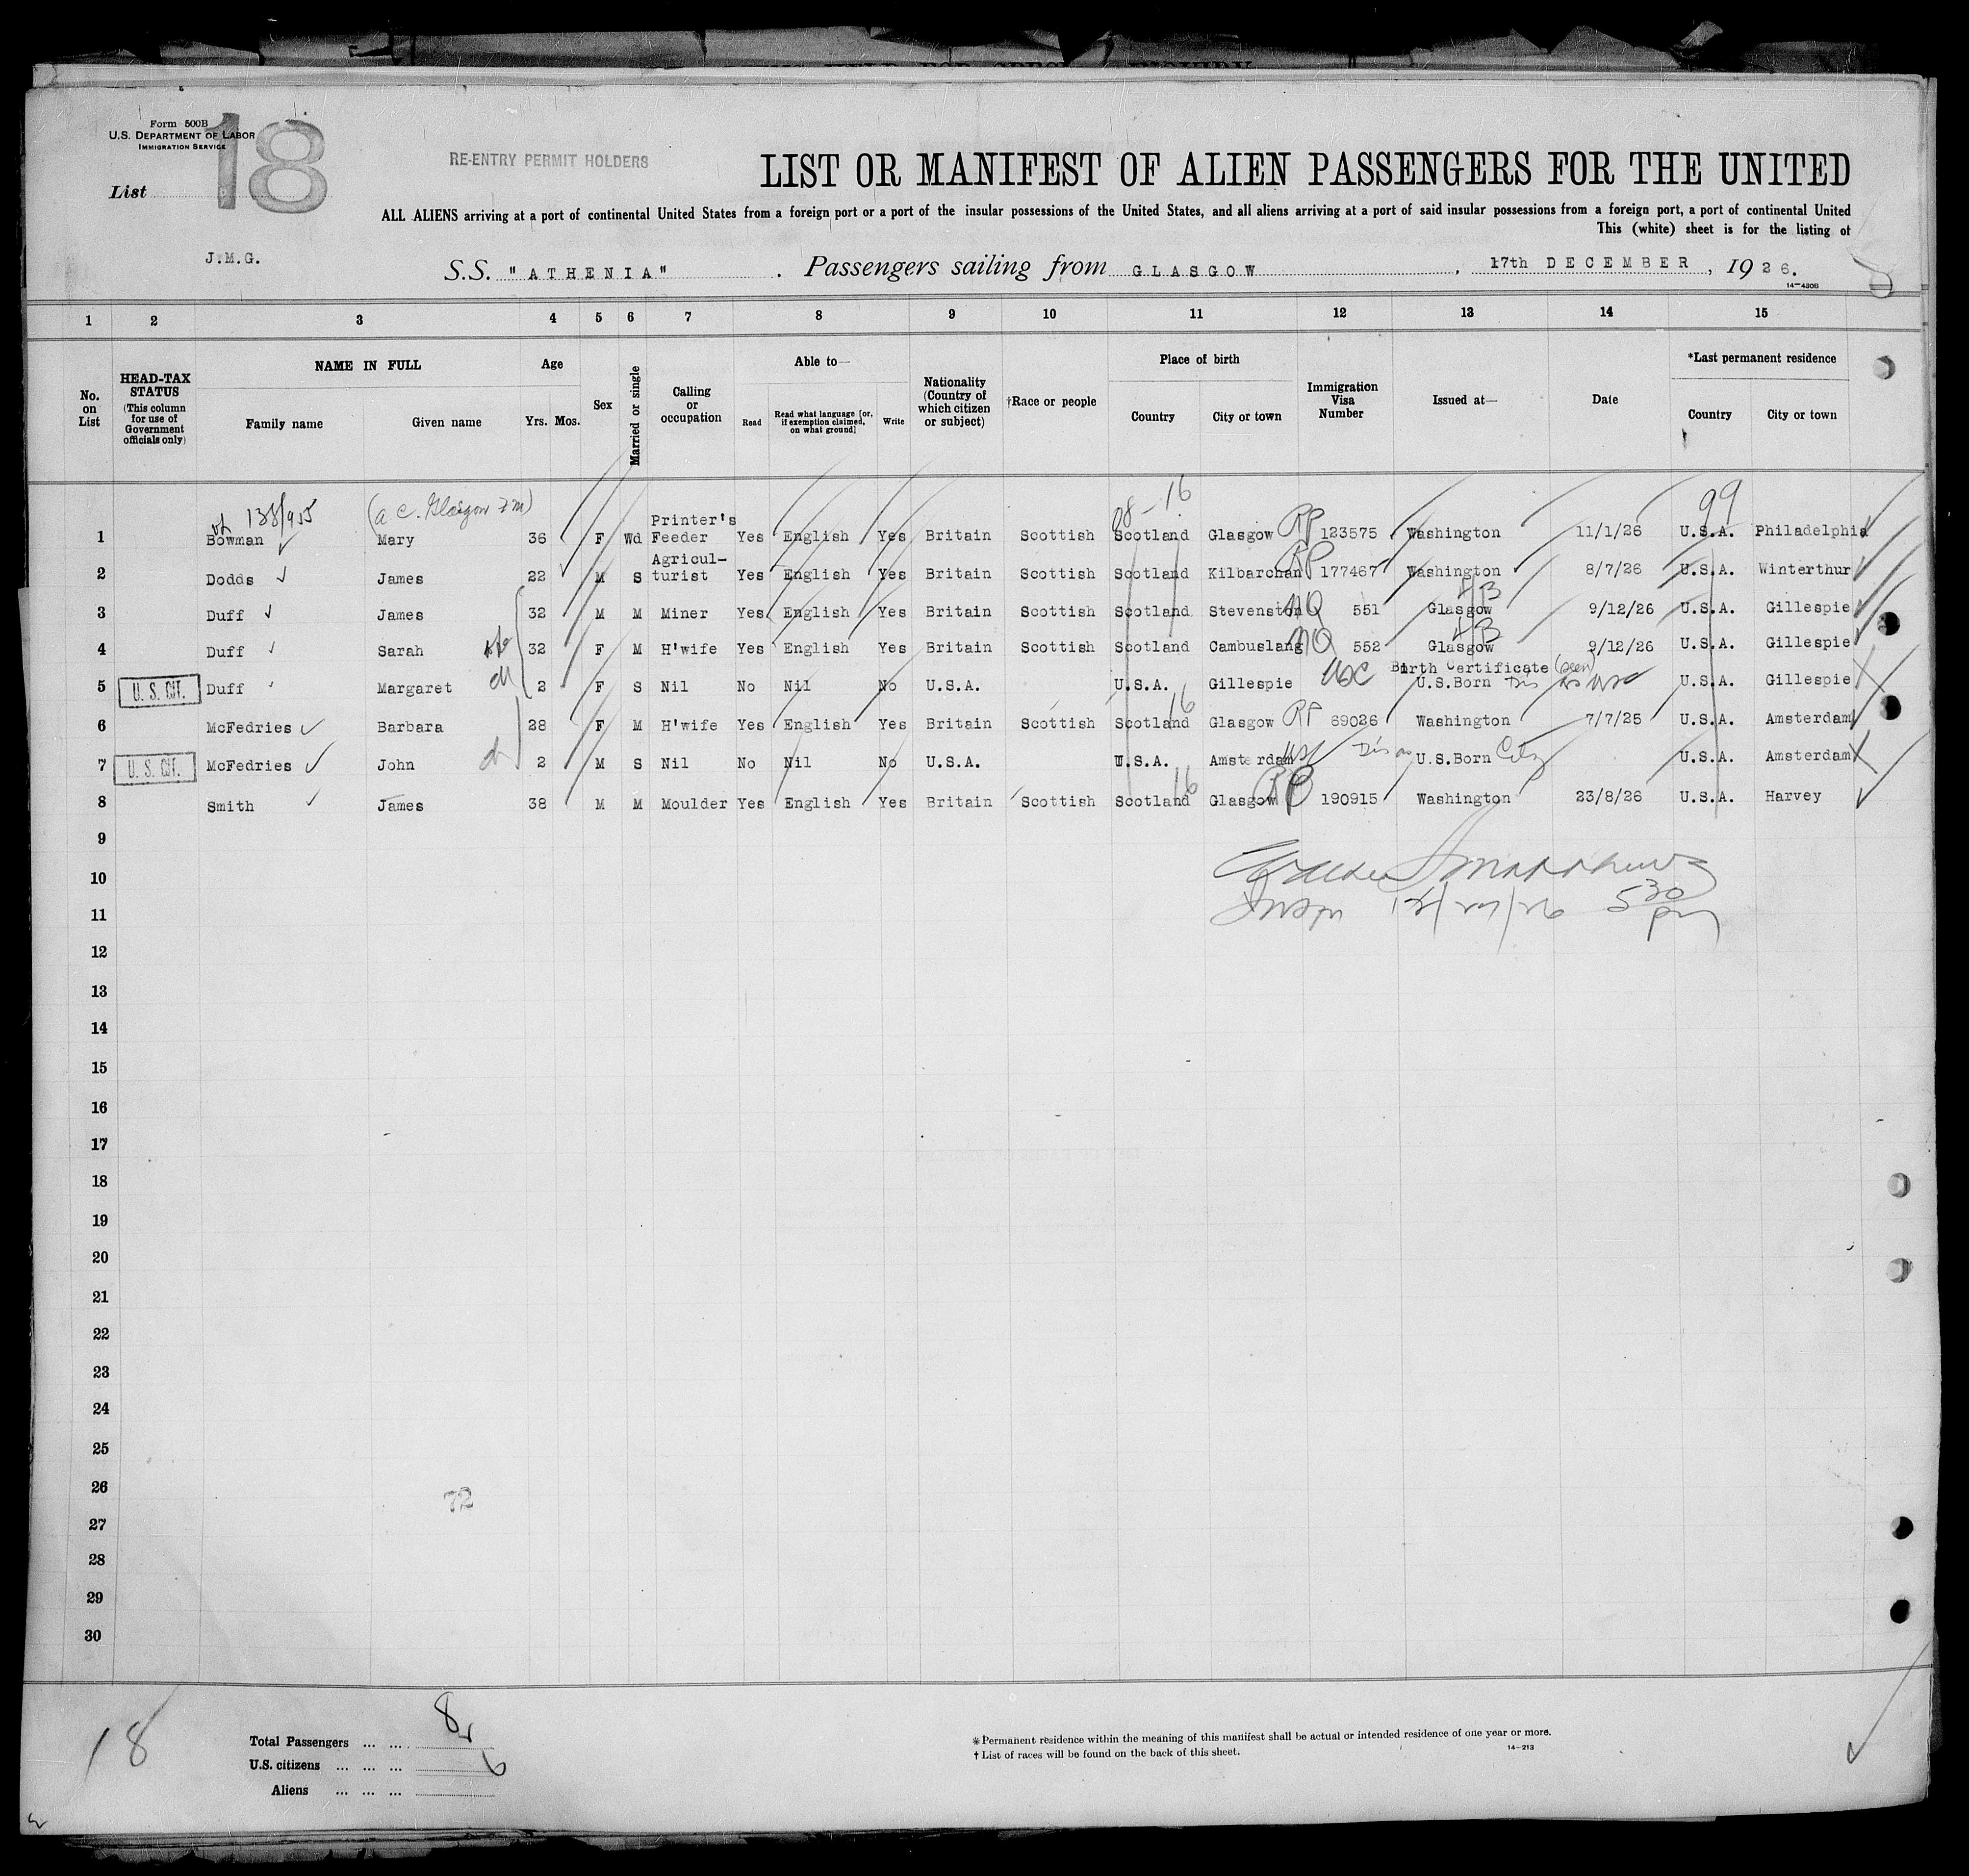 Form 500B
U.S. DEPARTMENT OF LABOR
IMMIGRATION SERVICE
List 18
RE-ENTRY PERMIT HOLDERS
LIST OR MANIFEST OF ALIEN PASSENGERS FOR THE UNITED
ALL ALIENS arriving at a port of continental United States from a foreign port or a port of the insular possessions of the United States, and all aliens arriving at a port of said insular possessions from a foreign port, a port of continental United
This (white) sheet is for the listing of
J.M.G.
S.S. "ATHENIA" . Passengers sailing from GLASGOW, 17th DECEMBER, 1926.
14—430B
1 2 3 4 5 6 7 8 9 10 11 12 13 14 15
No. on List
HEAD-TAX STATUS (This column for use of Government officials only)
NAME IN FULL
Family name Given name
Age
Yrs. Mos.
Sex
Married or single
Calling or occupation
Able to—
Read Read what language [or, if exemption claimed, on what ground] Write
Nationality (Country of which citizen or subject)
†Race or people
Place of birth
Country City or town
Immigration Visa Number
Issued at—
Date
*Last permanent residence
Country City or town
138/955 (a c. Glasgow 08-16 99
1 Bowman Mary 36 F Wd Printer's Feeder Yes English Yes Britain Scottish Scotland Glasgow RP 123575 Washington 11/1/26 U.S.A. Philadelphia
2 Dodds James 22 M S Agricul-turist Yes English Yes Britain Scottish Scotland Kilbarchan RP 177467 Washington 8/7/26 U.S.A. Winterthur
3 Duff James 32 M M Miner Yes English Yes Britain Scottish Scotland Stevenston NQ 551 Glasgow 9/12/26 U.S.A. Gillespie
4 Duff Sarah 32 F M H'wife Yes English Yes Britain Scottish Scotland Cambuslang NQ 552 Glasgow 9/12/26 U.S.A. Gillespie
5 U.S. CIT. Duff Margaret 2 F S Nil No Nil No U.S.A. U.S.A. Gillespie USC Birth Certificate (seen) U.S.Born U.S.A. Gillespie
6 McFedries Barbara 28 F M H'wife Yes English Yes Britain Scottish Scotland 16 Glasgow RP 69026 Washington 7/7/25 U.S.A. Amsterdam
7 U.S. CIT. McFedries John 2 M S Nil No Nil No U.S.A. U.S.A. Amsterdam U.S.Born U.S.A. Amsterdam
8 Smith James 38 M M Moulder Yes English Yes Britain Scottish Scotland 16 Glasgow RP 190915 Washington 23/8/26 U.S.A. Harvey
9
10
11 Insp 12/27/26 5 30 pm
12
13
14
15
16
17
18
19
20
21
22
23
24
25
26
72
27
28
29
30
18
Total Passengers ... ... 8
U.S. citizens ... ... ...
Aliens ... ... ...
* Permanent residence within the meaning of this manifest shall be actual or intended residence of one year or more.
† List of races will be found on the back of this sheet.
14—213